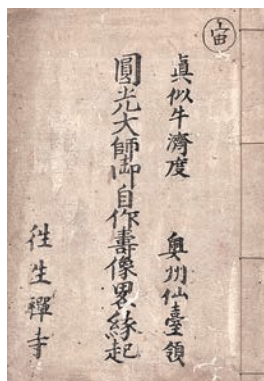 宙
真似牛濟度　奥州仙臺領
圓光大師御自作壽像畧縁起
徃生禪寺